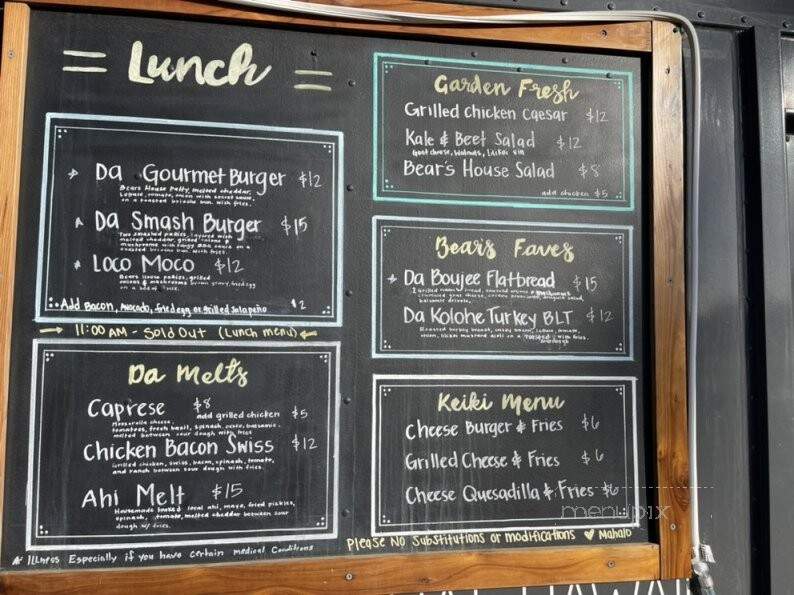 Lunch
Da Gourmet Burger $12
Bears House Patty, melted cheddar,
tomato, onion with secret sauce
on a toasted brioche bun with fries.
Da Smash Burger $15
Two smashed patties, layered with
melted cheddar, grilled onions &
mushrooms with tangy BBQ sauce on a
toasted brioche bun with fries.
Loco Moco $12
Bears House patties, grilled
onions & mushrooms brown gravy, fried egg
on a bed of rice.
Add Bacon, Avocado, fried egg or Grilled Jalapeño $2
11:00 AM - Sold Out (Lunch menu)
Da Melts
Caprese $8 add grilled chicken $5
Mozzarella cheese,
tomatoes, fresh basil, spinach, pesto, balsamic.
melted between sour dough with fries
Chicken Bacon Swiss $12
Grilled chicken, swiss, bacon, spinach, tomato,
and ranch between sour dough with fries.
Ahi Melt $15
Housemade smoked local ahi, mayo, fried pickles,
spinach, tomato, melted cheddar between sour
dough w/ fries.
Illness Especially if you have certain medical Conditions
Garden Fresh
Grilled Chicken Caesar $12
Kale & Beet Salad $12
Goat cheese, Walnuts, Lilikoi Vin
Bear's House Salad $8
add chicken $5
Bears Faves
Da Boujee Flatbread $15
Grilled naan bread,
crumbled goat cheese,
balsamic drizzle.
Da Kolohe Turkey BLT $12
Roasted turkey breast, crispy bacon, lettuce, tomato,
mustard aioli on a toasted w/ fries.
sourdough
Keiki Menu
Cheese Burger & Fries $6
Grilled Cheese & Fries $6
Cheese Quesadilla & Fries $6
Please No Substitutions or modifications ♥ Mahalo
menupix